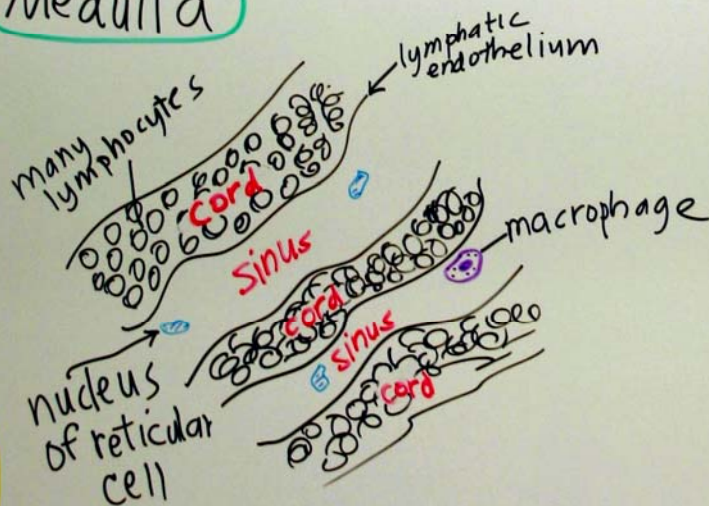 Medulla
lymphatic
endothelium
many
lymphocytes
cord
sinus
macrophage
cord
sinus
cord
nucleus
of reticular
cell